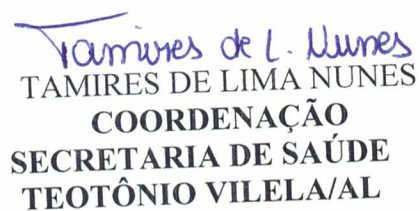 Tamires de L. Nunes
TAMIRES DE LIMA NUNES
COORDENAÇÃO
SECRETARIA DE SAÚDE
TEOTÔNIO VILELA/AL